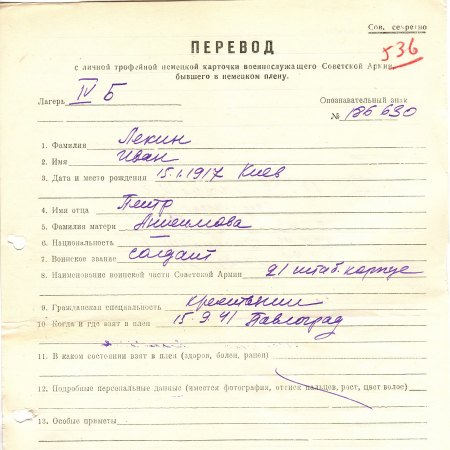 Сов. секретно
536
ПЕРЕВОД
с личной трофейной немецкой карточки военнослужащего Советской Армии,
бывшего в немецком плену.
Лагерь IV Б
Опознавательный знак
№ 186 630
1. Фамилия Лекин
2. Имя Иван
3. Дата и место рождения 15.1.1917 Киев
4. Имя отца Петр
5. Фамилия матери Анисимова
6. Национальность —
7. Воинское звание солдат
8. Наименование воинской части Советской Армии 21 штаб. корпус
9. Гражданская специальность крестьянин
10 Когда и где взят в плен 15.9.41 Павлоград
11. В каком состоянии взят в плен (здоров, болен, ранен)
12. Подробные персональные данные (имеется фотография, оттиск пальцев, рост, цвет волос)
13. Особые приметы